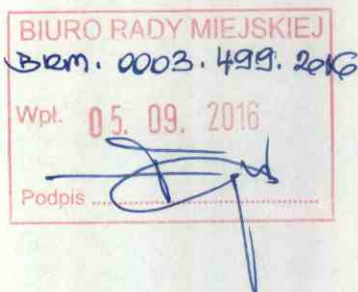 BIURO RADY MIEJSKIEJ
BRM. 0003. 499. 2016
Wpł. 05. 09. 2016
Podpis ..............................